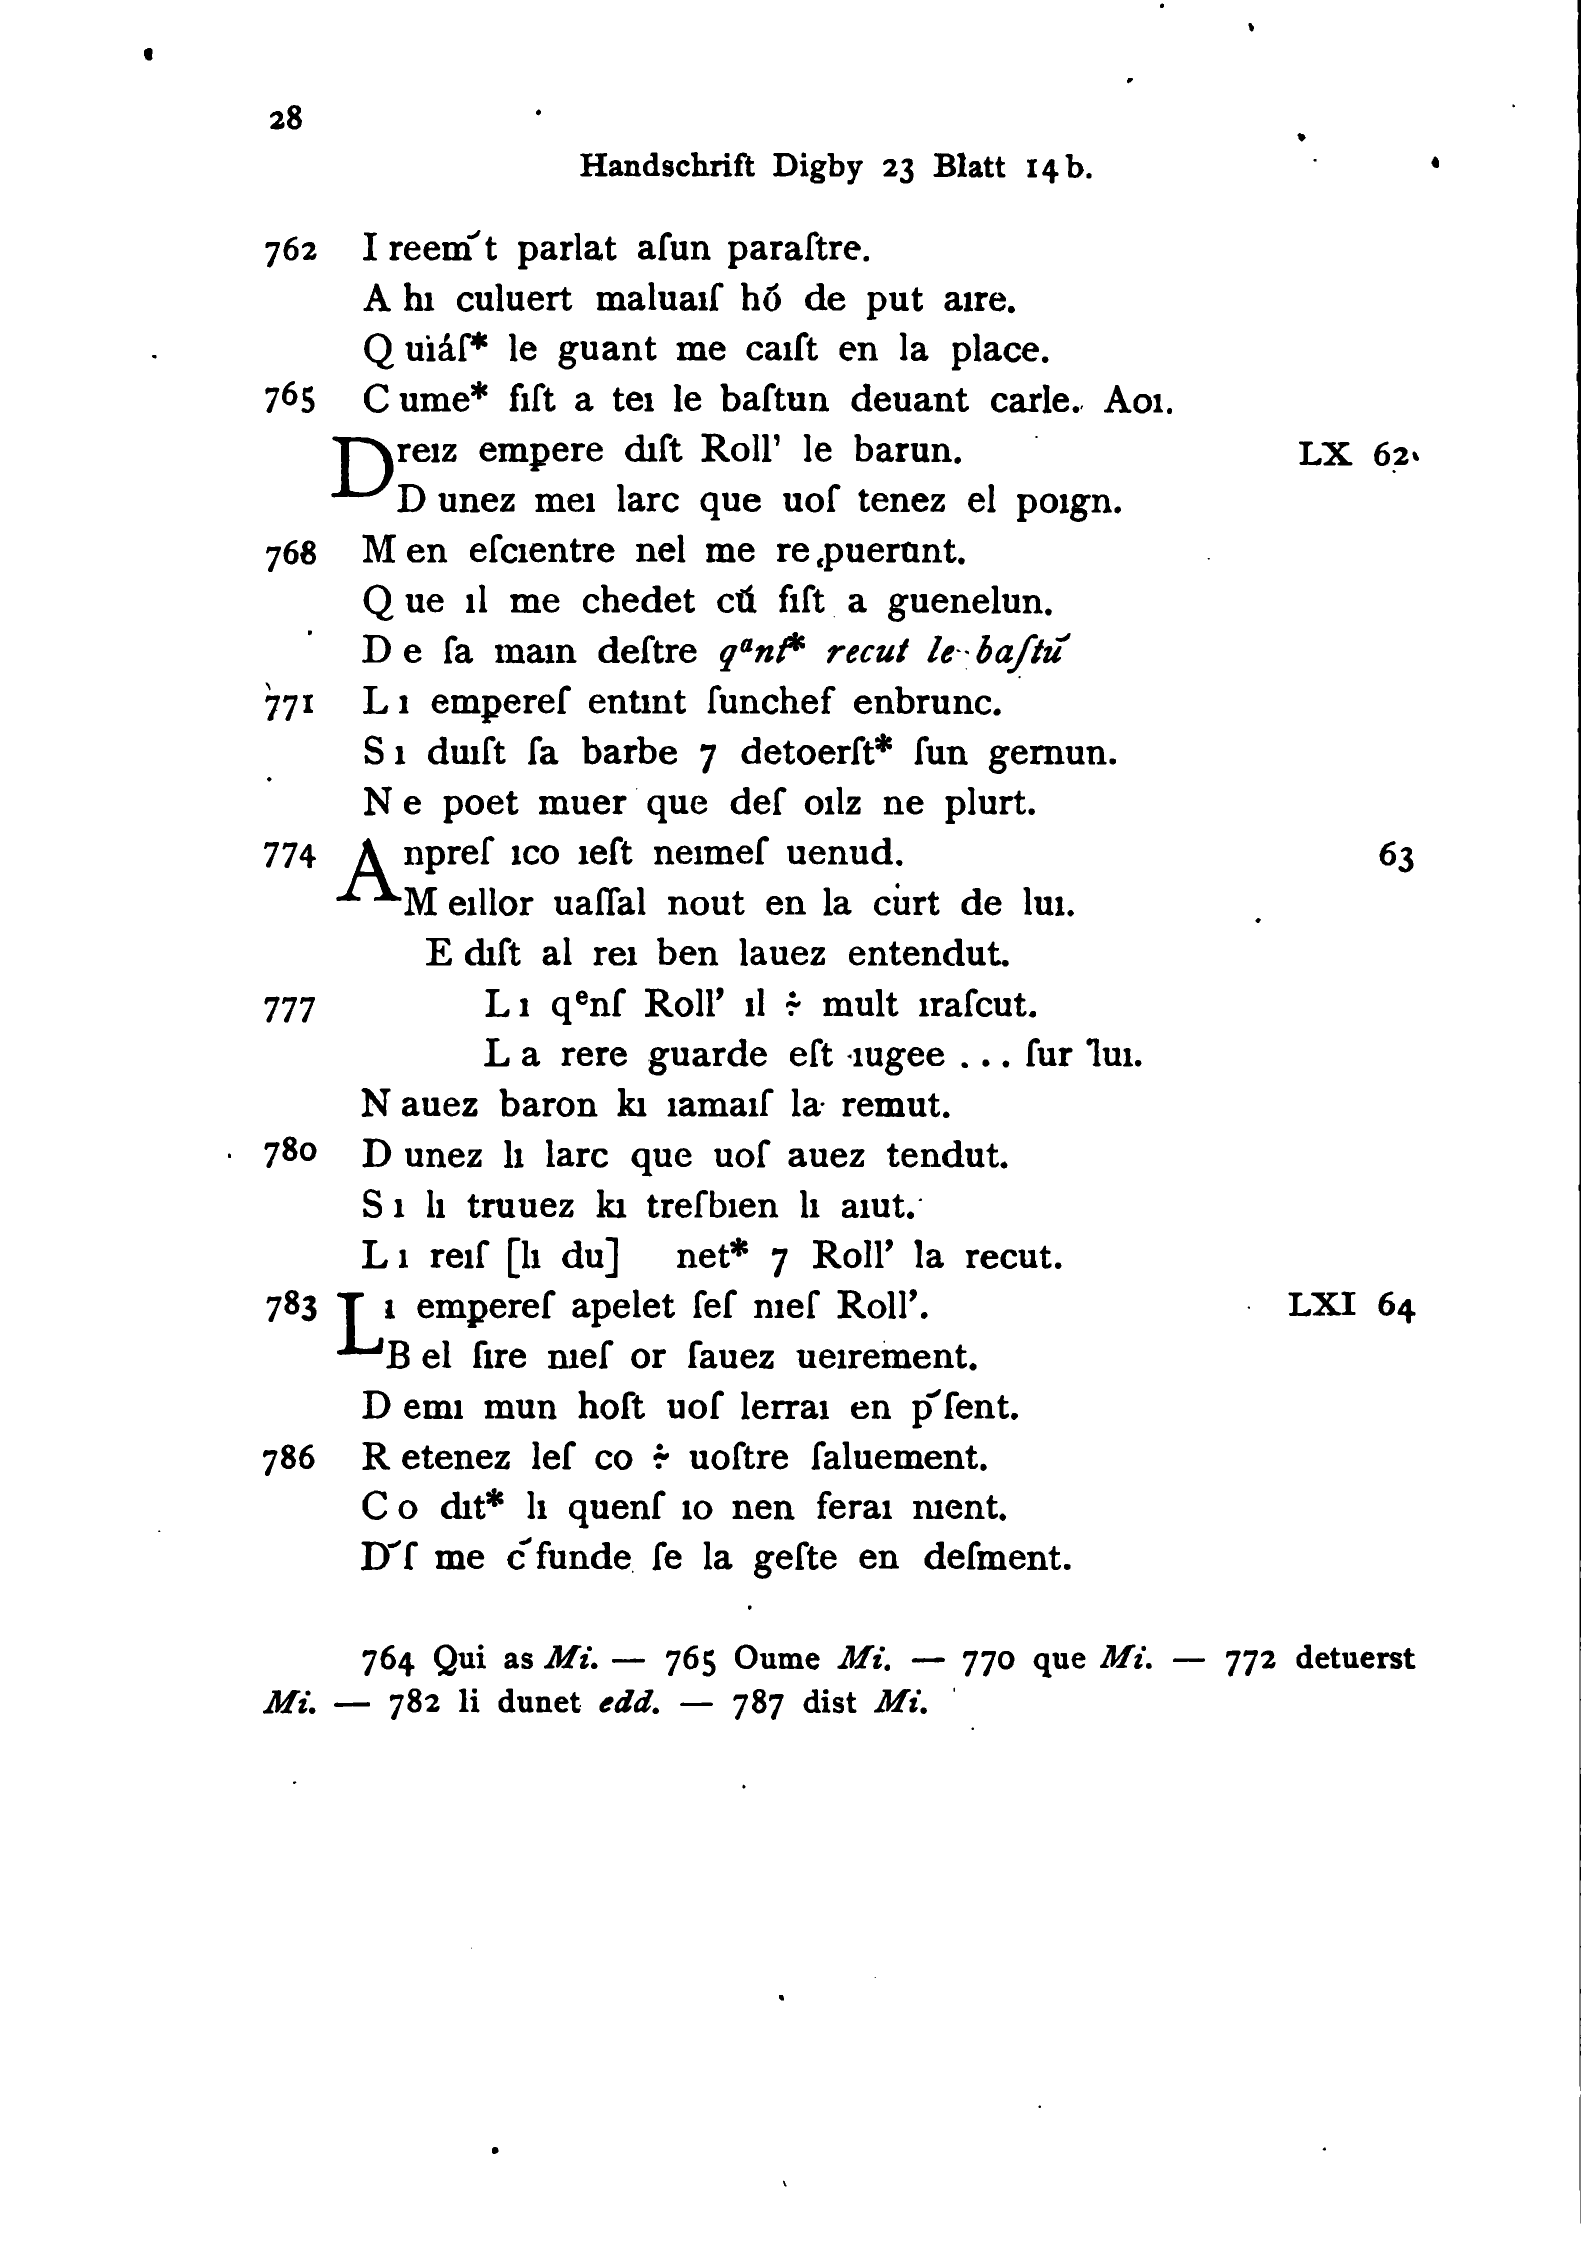 28
Handschrift Digby 23 Blatt 14b.
762 I reem̄t parlat aſun paraſtre.
A hı culuert maluaıſ hó de put aıre.
Q uiáſ* le guant me caıſt en la place.
765 C ume* fıſt a teı le baſtun deuant carle. Aoı.
Dreız empere dıſt Roll' le barun. LX 62
D unez meı larc que uoſ tenez el poıgn.
768 M en eſcıentre nel me re puerunt.
Q ue ıl me chedet cū fıſt a guenelun.
D e ſa maın deſtre qᵃnſ* recut le baſtū
771 L ı empereſ entınt ſunchef enbrunc.
S ı duıſt ſa barbe 7 detoerſt* ſun gernun.
N e poet muer que deſ oılz ne plurt.
774 Anpreſ ıco ıeſt neımeſ uenud. 63
M eıllor uaſſal nout en la curt de luı.
E dıſt al reı ben lauez entendut.
777 L ı qᵉnſ Roll' ıl ÷ mult ıraſcut.
L a rere guarde eſt ıugee . . . ſur luı.
N auez baron kı ıamaıſ la remut.
780 D unez lı larc que uoſ auez tendut.
S ı lı truuez kı treſbıen lı aıut.
L ı reıſ [lı du] net* 7 Roll' la recut.
783 L ı empereſ apelet ſeſ nıeſ Roll'. LXI 64
B el ſıre nıeſ or ſauez ueırement.
D emı mun hoſt uoſ lerraı en p̄ſent.
786 R etenez leſ co ÷ uoſtre ſaluement.
C o dıt* lı quenſ ıo nen feraı nıent.
D̄ſ me c̄funde ſe la geſte en deſment.
764 Qui as Mi. — 765 Oume Mi. — 770 que Mi. — 772 detuerst
Mi. — 782 li dunet edd. — 787 dist Mi.